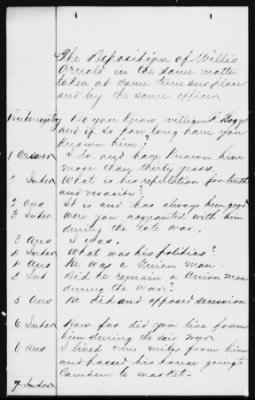 The Deposition of Willis
Arnold in the same matter
taken at same time and place
and by the same officer
1 Interrogatory Do you know William T Boggs
and if so how long have you
known him?
1 Answer I do and have known him
more than thirty years
2 Inter What is his reputation for truth
and veracity?
2 Ans It is and has always been good
3 Inter Were you acquainted with him
during the late war.
3 Ans I was.
4 Inter What was his politics?
4 Ans He was a Union man.
5 Int Did he remain a Union man
during the war?
5 Ans He did and opposed secession
6 Inter How far did you live from
him during the said war
6 Ans I lived nine miles from him
and passed his house going to
Camden to market.
7 Inter